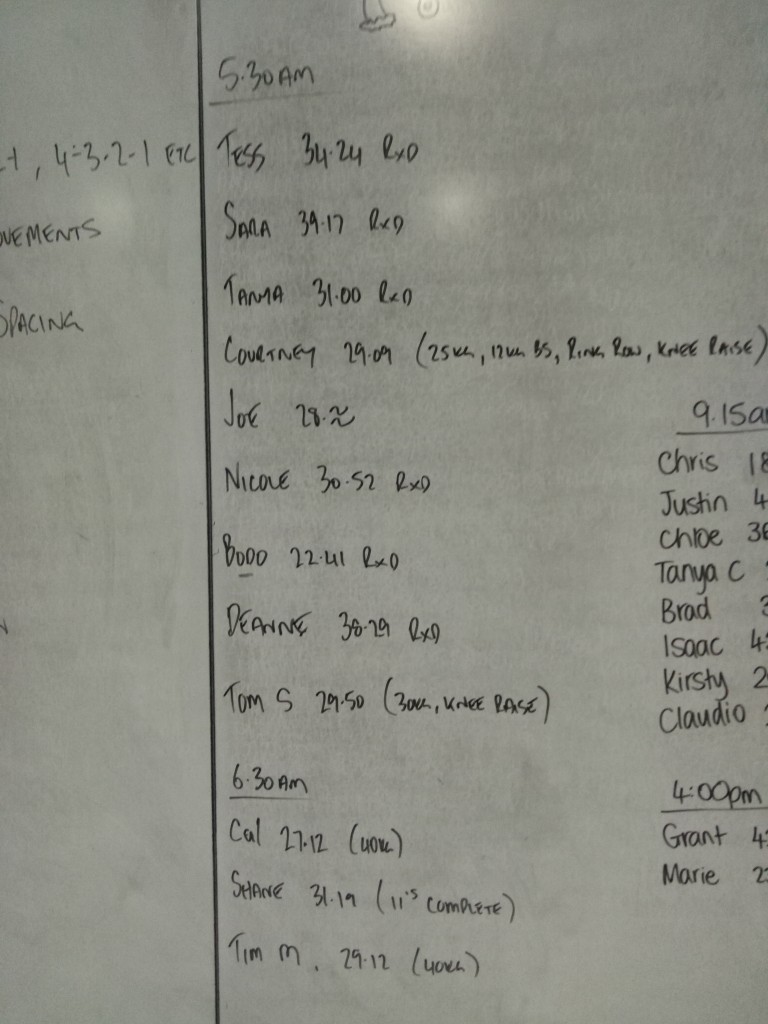 4-3-2-1 ETC
VEMENTS
SPACING
5.30AM
TESS 34.24 RxD
SARA 39.17 RxD
TANYA 31.00 RxD
COURTNEY 29.09 (25KG, 12KG BS, RING ROW, KNEE RAISE)
JOE 28.
NICOLE 30.52 RxD
BODO 22.41 RxD
DEANNE 38.29 RxD
TOM S 29.50 (30KG, KNEE RAISE)
6.30AM
Cal 27.12 (40KG)
SHANE 31.19 (11'S COMPLETE)
TIM M. 29.12 (40KG)
9.15a
Chris 18
Justin 4
Chloe 36
Tanya C
Brad
Isaac 4
Kirsty 2
Claudio
4:00pm
Grant 4
Marie 2